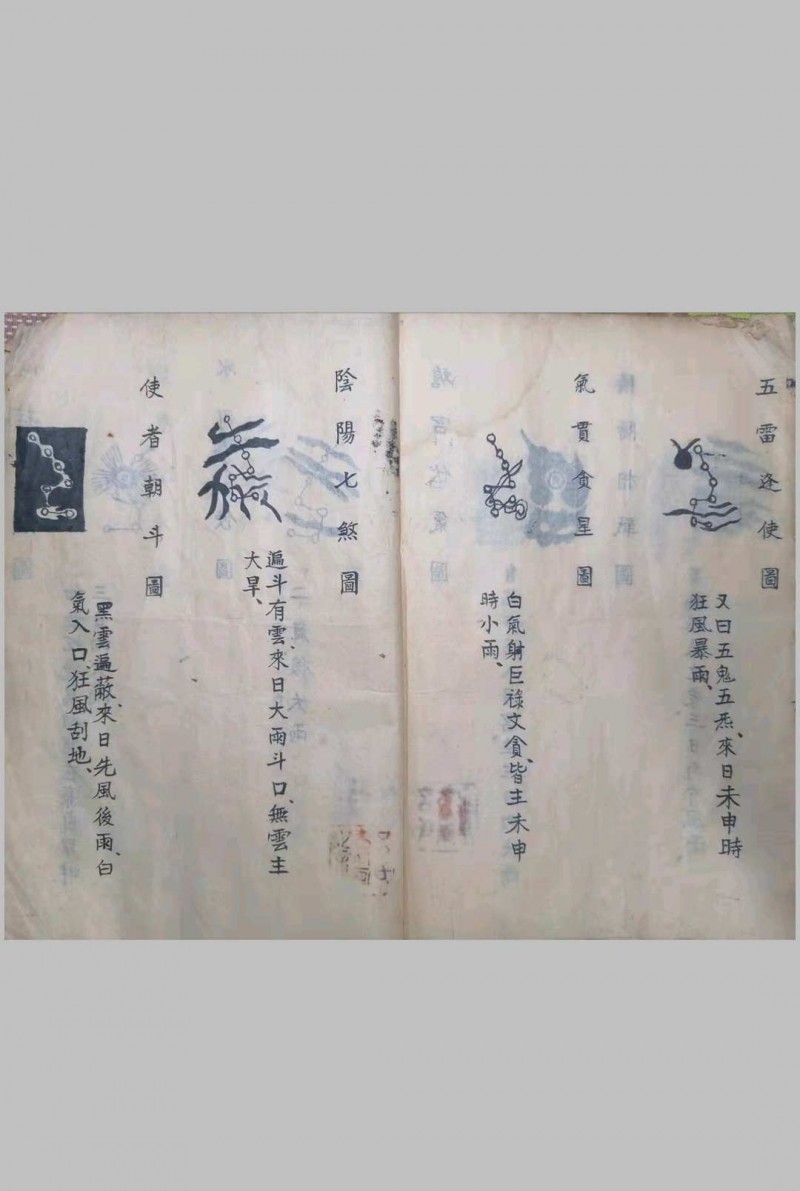 五雷逐使圖
又曰五鬼五炁、來日未申時
狂風暴雨、
氣貫貪星圖
白氣射巨祿文貪、皆主未申
時小雨、
陰陽七煞圖
遍斗有雲、來日大雨斗口、無雲主
大旱、
使者朝斗圖
黑雲遍蔽、來日先風後雨、白
氣入口、狂風刮地、